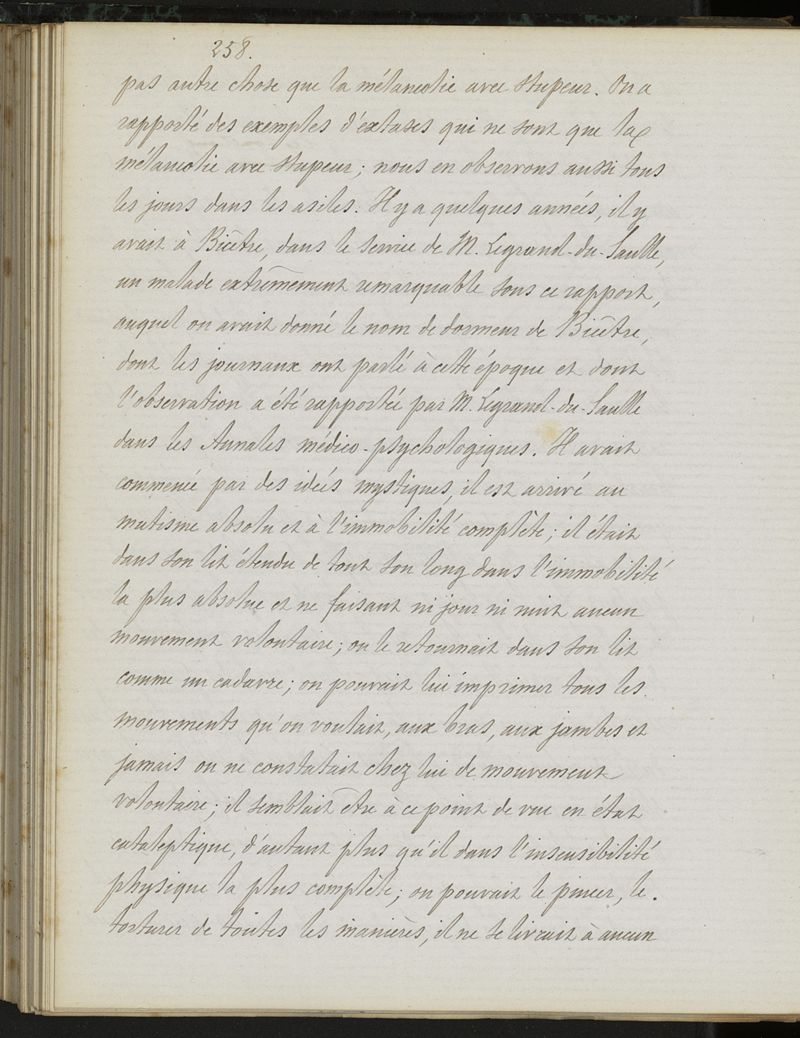 258.
pas autre chose que la mélancolie avec stupeur. On a
rapporté des exemples d'extases qui ne sont que la
mélancolie avec stupeur; nous en observons aussi tous
les jours dans les asiles. Il y a quelques années, il y
avait à Bicêtre, dans le service de M. Legrand-du-Saulle,
un malade extrêmement remarquable sous ce rapport,
auquel on avait donné le nom de dormeur de Bicêtre,
dont les journaux ont parlé à cette époque et dont
l'observation a été rapportée par M. Legrand-du-Saulle
dans les Annales médico-psychologiques. Il avait
commencé par des idées mystiques, il est arrivé au
mutisme absolu et à l'immobilité complète; il était
dans son lit étendu de tout son long dans l'immobilité
la plus absolue et ne faisant ni jour ni nuit aucun
mouvement volontaire; on le retournait dans son lit
comme un cadavre; on pouvait lui imprimer tous les
mouvements qu'on voulait, aux bras, aux jambes et
jamais on ne constatait chez lui de mouvement
volontaire; il semblait être à ce point de vue en état
cataleptique, d'autant plus qu'il dans l'insensibilité
physique la plus complète; on pouvait le pincer, le
torturer de toutes les manières, il ne se livrait à aucun